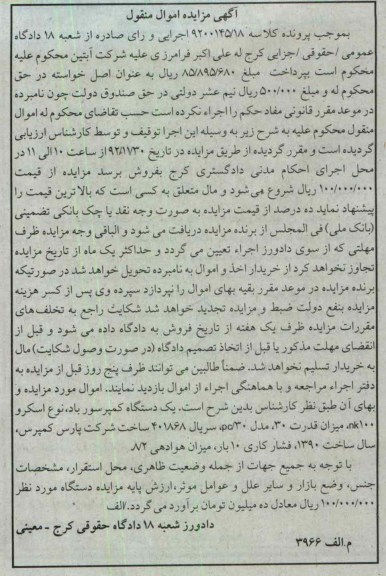 آگهی مزایده اموال منقول
بموجب پرونده کلاسه ۹۲۰۰۱۴۵/۱۸ اجرایی و رای صادره از شعبه ۱۸ دادگاه
عمومی /حقوقی /جزایی کرج له علی اکبر فرامرزی علیه شرکت آبتین محکوم علیه
محکوم است بپرداخت مبلغ ۸۵/۸۹۵/۶۸۰ ریال به عنوان اصل خواسته در حق
محکوم له و مبلغ ۵۰۰/۰۰۰ ریال نیم عشر دولتی در حق صندوق دولت چون نامبرده
در موعد مقرر قانونی مفاد حکم را اجراء نکرده است حسب تقاضای محکوم له اموال
منقول محکوم علیه به شرح زیر به وسیله این اجرا توقیف و توسط کارشناس ارزیابی
گردیده است و مقرر گردیده از طریق مزایده در تاریخ ۹۲/۱۱/۳۰ از ساعت ۱۰ الی ۱۱ در
محل اجرای احکام مدنی دادگستری کرج بفروش برسد مزایده از قیمت
۱۰۰/۰۰۰/۰۰۰ ریال شروع می شود و مال متعلق به کسی است که بالاترین قیمت را
پیشنهاد نماید ده درصد از قیمت مزایده به صورت وجه نقد یا چک بانکی تضمینی
(بانک ملی) فی المجلس از برنده مزایده دریافت می شود و الباقی وجه مزایده ظرف
مهلتی که از سوی دادورز اجراء تعیین می گردد و حداکثر یک ماه از تاریخ مزایده
تجاوز نخواهد کرد از خریدار اخذ و اموال به نامبرده تحویل خواهد شد در صورتیکه
برنده مزایده در موعد مقرر بقیه بهای اموال را نپردازد سپرده وی پس از کسر هزینه
مزایده بنفع دولت ضبط و مزایده تجدید خواهد شد شکایت راجع به تخلف های
مقررات مزایده ظرف یک هفته از تاریخ فروش به دادگاه داده می شود و قبل از
انقضای مهلت مذکور یا قبل از اتخاذ تصمیم دادگاه (در صورت وصول شکایت) مال
به خریدار تسلیم نخواهد شد. ضمناً طالبین می توانند ظرف پنج روز قبل از مزایده به
دفتر اجراء مراجعه و با هماهنگی اجراء از اموال بازدید نمایند. اموال مورد مزایده و
بهای آن طبق نظر کارشناس بدین شرح است. یک دستگاه کمپرسور باد، نوع اسکرو
nk۱۰۰، میزان قدرت ۳۰، مدل po/۳۰، سریال ۴۰۱۸۶۸ ساخت شرکت پارس کمپرس،
سال ساخت ۱۳۹۰، فشار کاری ۱۰ بار، میزان هوادهی ۸/۲.
با توجه به جمیع جهات از جمله وضعیت ظاهری، محل استقرار، مشخصات
جنس، وضع بازار و سایر علل و عوامل موثر، ارزش پایه مزایده دستگاه مورد نظر
۱۰۰/۰۰۰/۰۰۰ ریال معادل ده میلیون تومان برآورد می گردد./الف
دادورز شعبه ۱۸ دادگاه حقوقی کرج - معینی
م.الف ۳۹۶۶